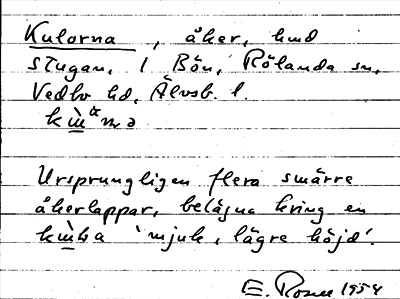 Kulorna, åker, hmd
stugan, 1 Bön, Rölanda sn,
Vedbo hd, Älvsb. l.
Ursprungligen flera smärre
åkerlappar, belägna kring en
'mjuk, lägre höjd'.
E. Rosell 1954